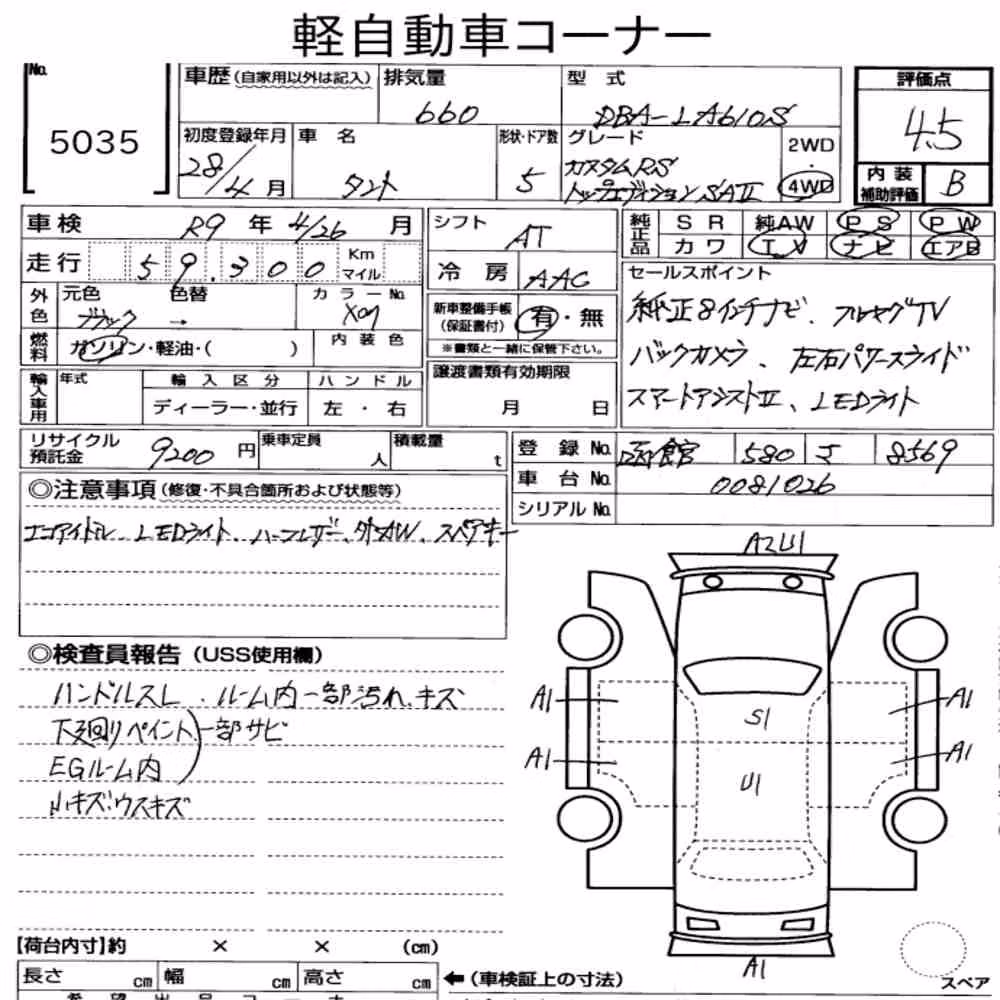 軽自動車コーナー
No.
5035
車歴 (自家用以外は記入)
排気量
660
型式
DBA-LA610S
評価点
4.5
内装補助評価
B
初度登録年月
28/4月
車名
タント
形状・ドア数
5
グレード
カスタムRS
トップエディションSAⅡ
2WD
・
4WD
車検
R9年 4/26月
走行
59,300
Km
マイル
シフト
AT
冷房
AAC
純正品
SR 純AW PS PW
カワ TV ナビ エアB
外色
元色 色替
ブラック →
カラーNo.
X09
燃料
ガソリン・軽油・( )
内装色
新車整備手帳
(保証書付)
有・無
※書類と一緒に保管下さい。
セールスポイント
純正8インチナビ、フルセグTV
バックカメラ、左右パワースライド
スマートアシストⅡ、LEDライト
輸入車用
年式
輸入区分
ディーラー・並行
ハンドル
左・右
譲渡書類有効期限
月 日
リサイクル預託金
9200円
乗車定員
人
積載量
t
登録No.
函館 580 さ 8569
車台No.
0081026
シリアルNo.
◎注意事項(修復・不具合箇所および状態等)
エコアイドル、LEDライト、ハーフレザー、外AW、スペアキー
◎検査員報告(USS使用欄)
ハンドルスレ、ルーム内一部汚れ、キズ
下廻りペイント
EGルーム内
)一部サビ
小キズ、ウスキズ
A2U1
A1
A1
S1
U1
A1
A1
A1
スペア
【荷台内寸】約 × × (cm)
長さ cm 幅 cm 高さ cm
←(車検証上の寸法)